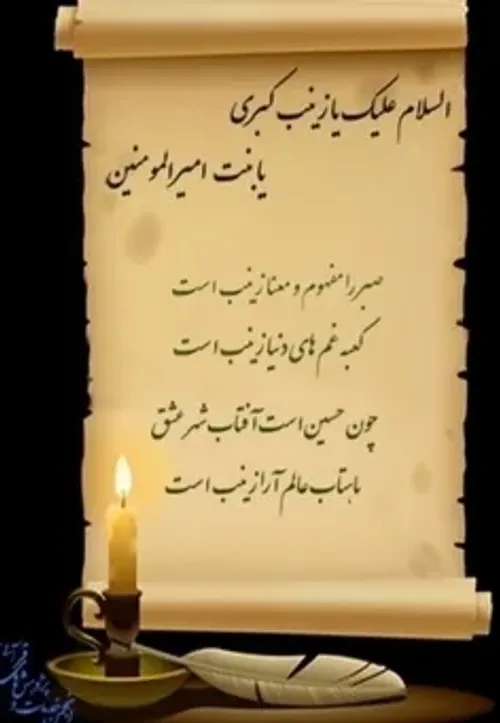 السلام علیک یا زینب کبری
یا بنت امیرالمومنین
صبر را مفهوم و معنا زینب است
کعبه غم های دنیا زینب است
چون حسین است آفتاب شهر عشق
ماهتاب عالم آرا زینب است